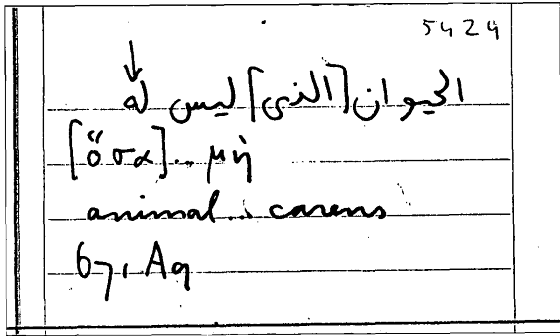 5424
الحيوان [الذى] ليس له
[ὅσα]... μὴ
animal... carens
67, A9